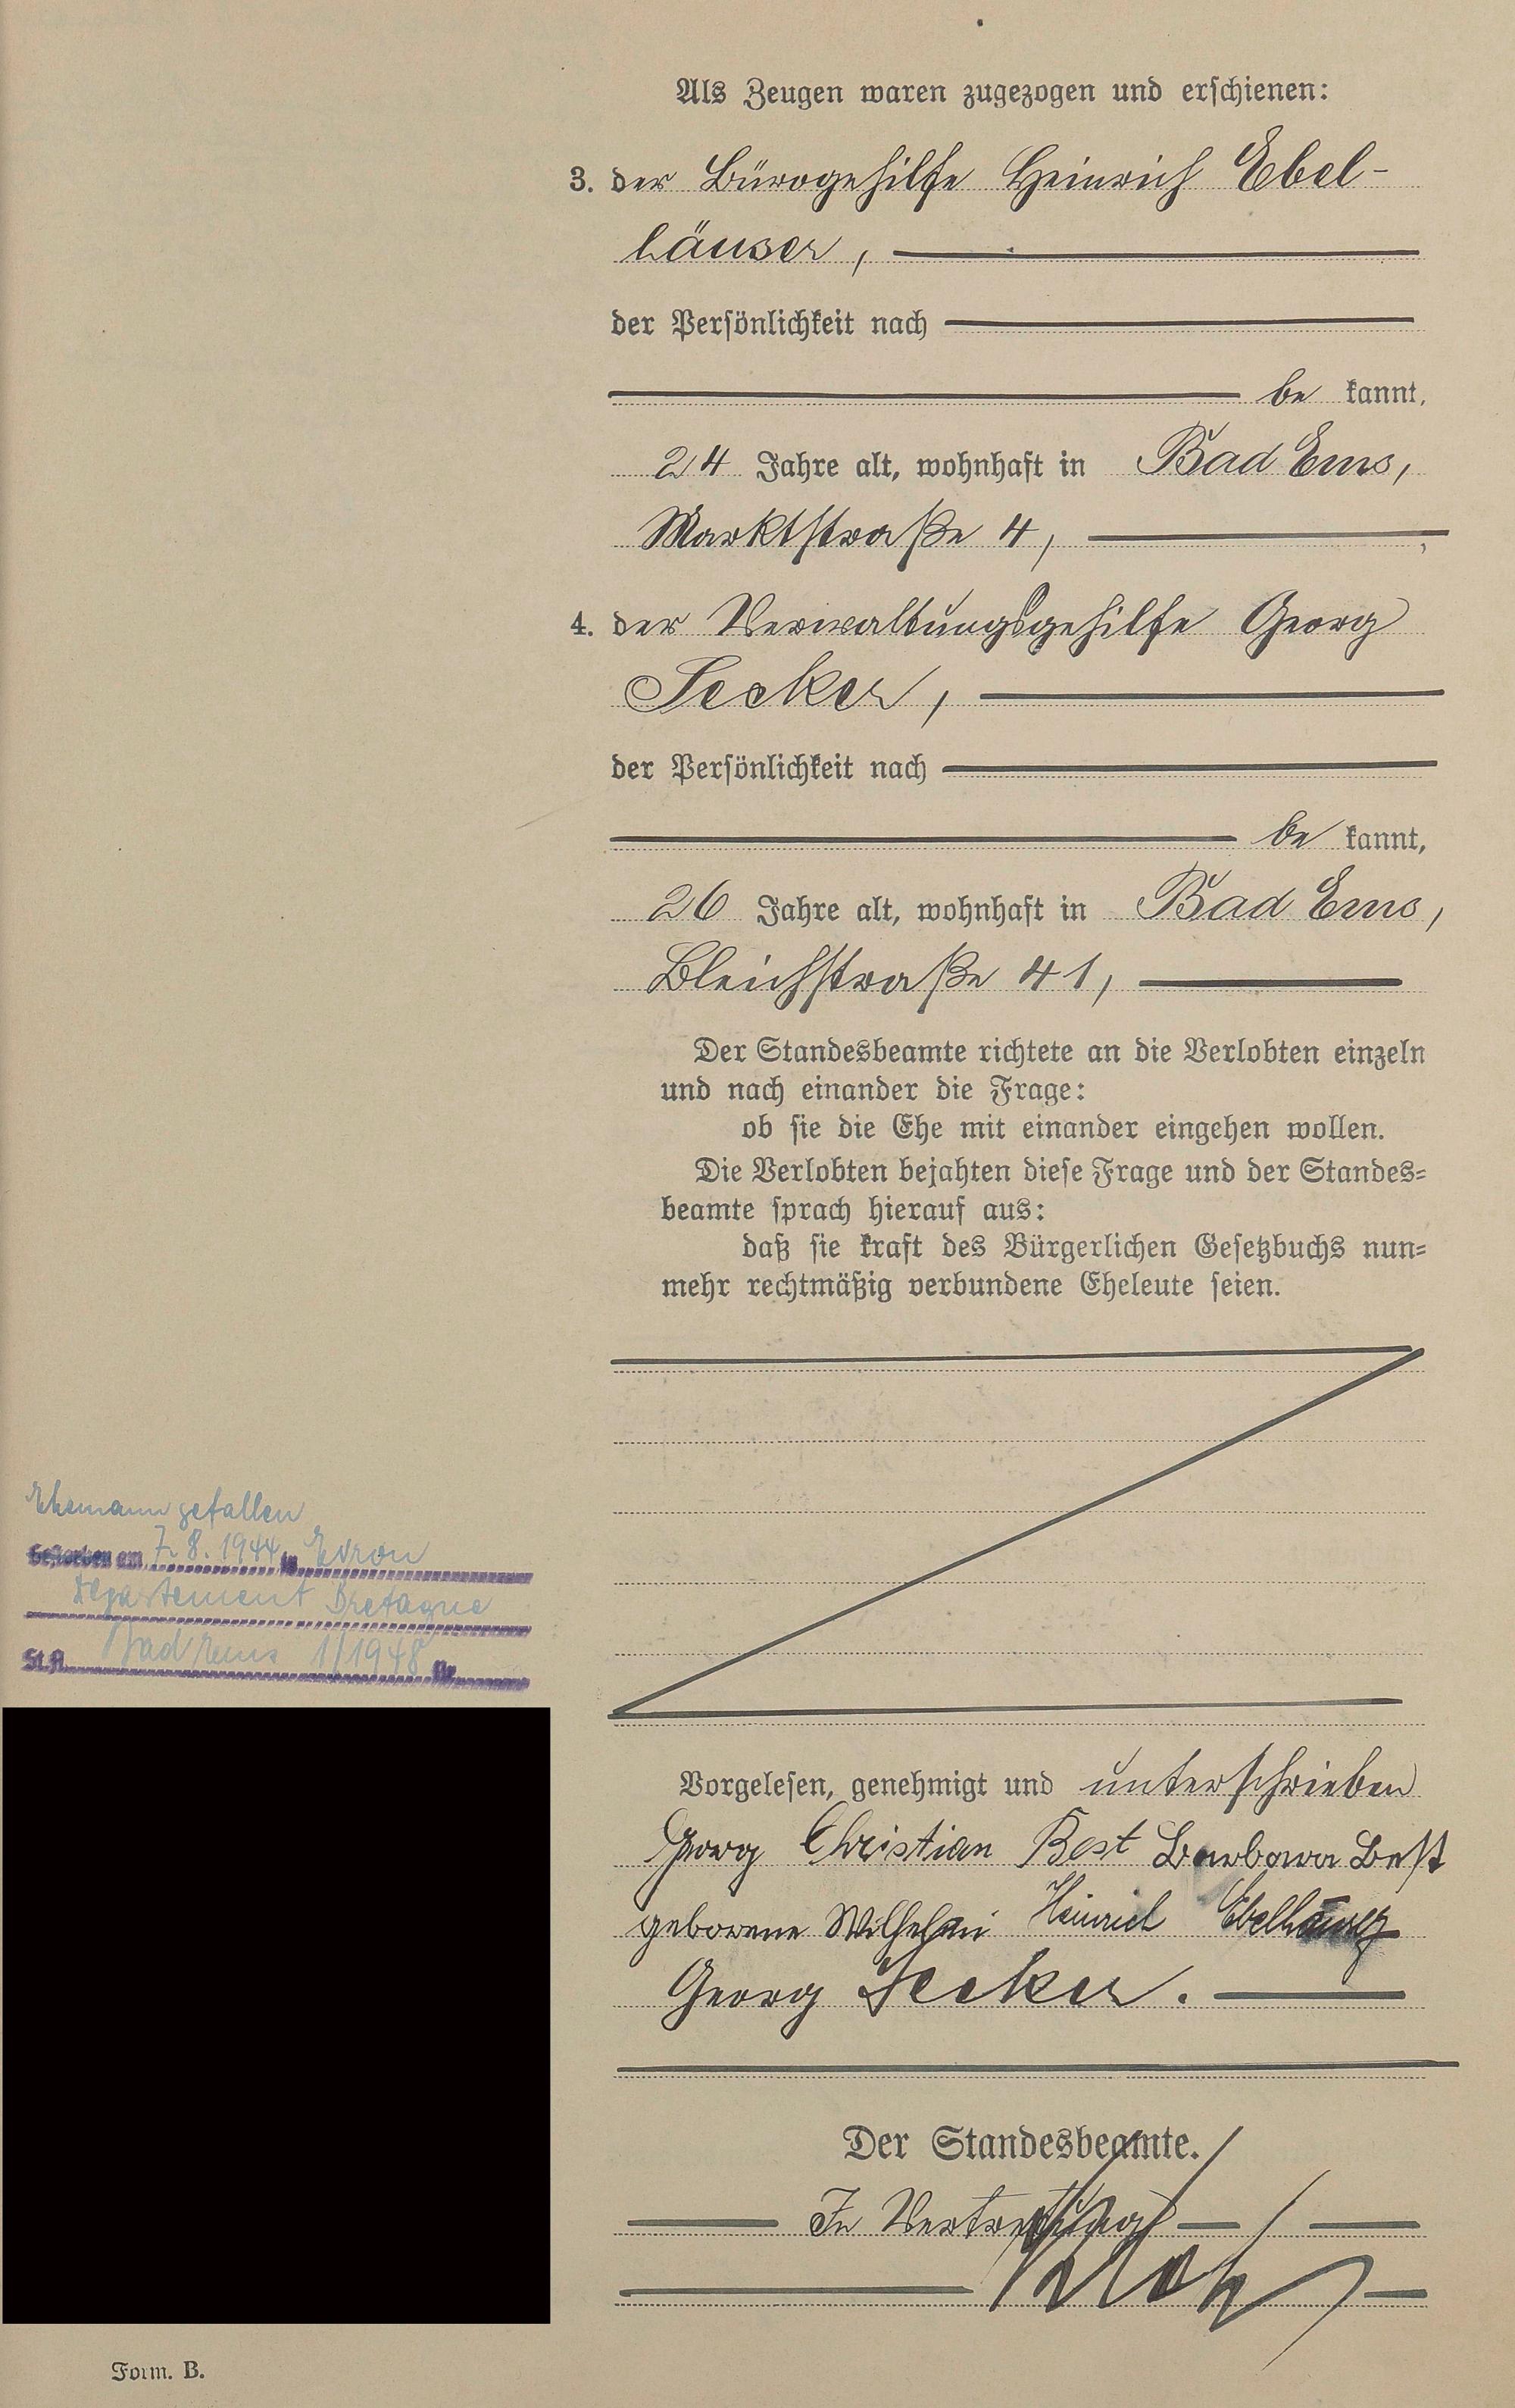 Als Zeugen waren zugezogen und erschienen:
3. der Bürogehilfe Heinrich Ebel-
häuser,
der Persönlichkeit nach
be kannt,
24 Jahre alt, wohnhaft in Bad Ems,
Marktstraße 4,
4. der Verwaltungsgehilfe Georg
Secker,
der Persönlichkeit nach
be kannt,
26 Jahre alt, wohnhaft in Bad Ems,
Bleichstraße 41,
Der Standesbeamte richtete an die Verlobten einzeln
und nach einander die Frage:
ob sie die Ehe mit einander eingehen wollen.
Die Verlobten bejahten diese Frage und der Standes-
beamte sprach hierauf aus:
daß sie kraft des Bürgerlichen Gesetzbuchs nun-
mehr rechtmäßig verbundene Eheleute seien.
Ehemann gefallen
Gestorben am 7.8.1944 in Evron
Departement Bretagne
St.A. Bad Ems 1/1948 Nr.
Vorgelesen, genehmigt und unterschrieben
Georg Christian Best Barbara Best
geborene Wilhelmi Heinrich Ebelhäuser
Georg Secker.
Der Standesbeamte.
In Vertretung
Form. B.